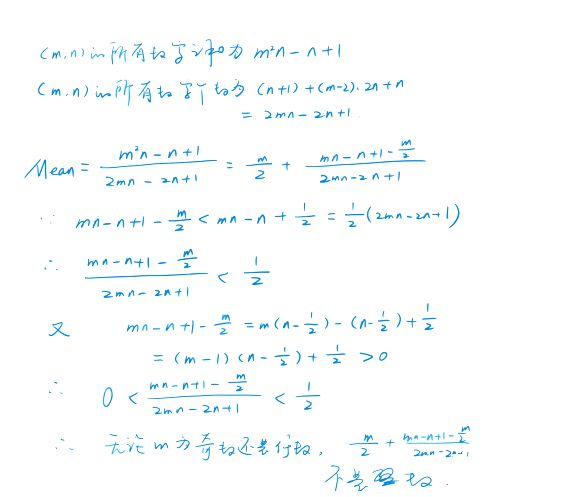 (m,n)的所有数字之和为 m²n-n+1
(m,n)的所有数字个数为 (n+1)+(m-2)·2n+n
= 2mn-2n+1
Mean = \frac{m²n-n+1}{2mn-2n+1} = \frac{m}{2} + \frac{mn-n+1-\frac{m}{2}}{2mn-2n+1}
∵ mn-n+1-\frac{m}{2} < mn-n+\frac{1}{2} = \frac{1}{2}(2mn-2n+1)
∴ \frac{mn-n+1-\frac{m}{2}}{2mn-2n+1} < \frac{1}{2}
又 mn-n+1-\frac{m}{2} = m(n-\frac{1}{2})-(n-\frac{1}{2})+\frac{1}{2}
= (m-1)(n-\frac{1}{2})+\frac{1}{2} > 0
∴ 0 < \frac{mn-n+1-\frac{m}{2}}{2mn-2n+1} < \frac{1}{2}
∴ 无论m为奇数还是偶数, \frac{m}{2} + \frac{mn-n+1-\frac{m}{2}}{2mn-2n+1}
不是整数.